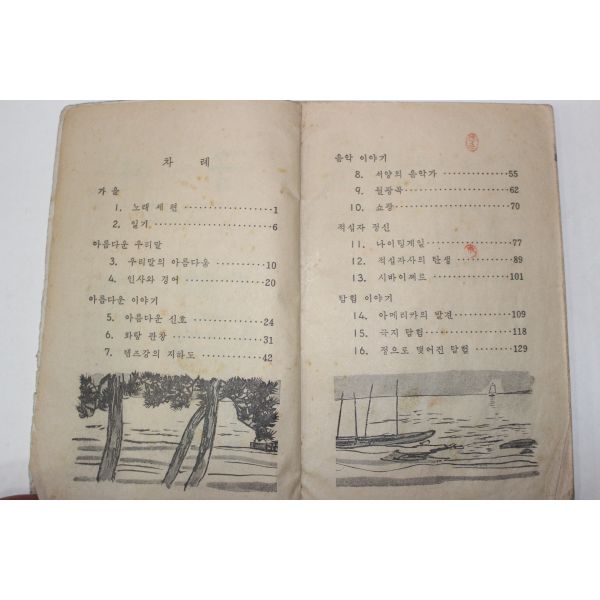 차 례
가 을
1. 노래 세 편 ················1
2. 일기 ························6
아름다운 우리말
3. 우리말의 아름다움 ··········10
4. 인사와 경어 ················20
아름다운 이야기
5. 아름다운 신호 ··············24
6. 화랑 관창 ··················31
7. 템즈강의 지하도 ············42
음악 이야기
8. 서양의 음악가 ··············55
9. 월광곡 ······················62
10. 쇼팡 ························70
적십자 정신
11. 나이팅게일 ················77
12. 적십자사의 탄생 ············89
13. 시바이쩌르 ················101
탐험 이야기
14. 아메리카의 발견 ············109
15. 극지 탐험 ··················118
16. 정으로 맺어진 탐험 ········129